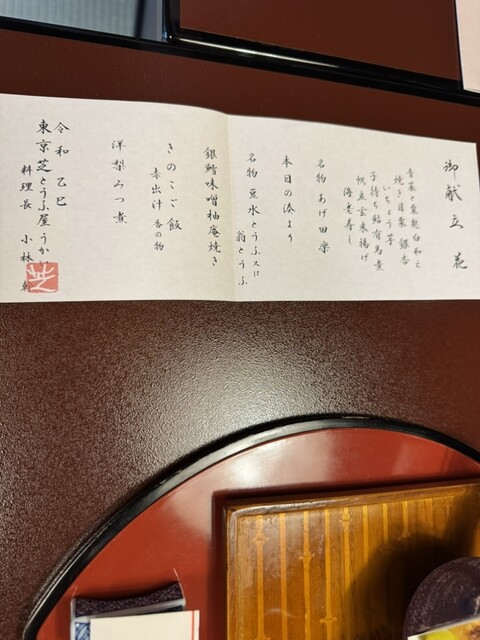 御献立 花
青菜と粟麩白和え
焼き目栗 銀杏
いちょう芋
子持ち鮎有馬煮
帆立玄米揚げ
海老寿し
名物 あげ田楽
本日の湊より
名物 豆水とうふ又は
翁とうふ
銀鱈味噌柚庵焼き
きのこご飯
赤出汁 香の物
洋梨みつ煮
令和 乙巳
東京芝とうふ屋うかい
料理長 小林
芝